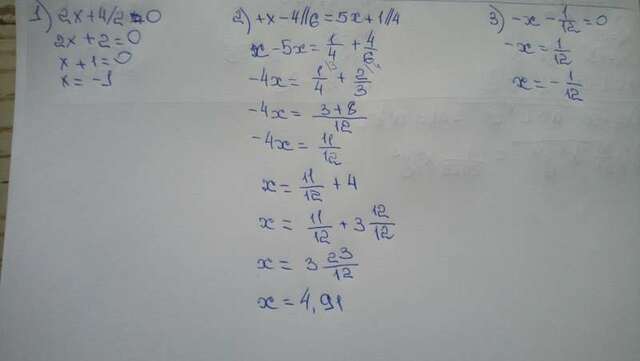 1) 2x+4/2=0
2x+2=0
x+1=0
x=-1
2) +x-4//6=5x+1//4
x-5x=1/4+4/6
-4x=1/4+2/3
-4x=3+8/12
-4x=11/12
x=11/12+4
x=11/12+3 12/12
x=3 23/12
x=4,91
3) -x-1/12=0
-x=1/12
x=-1/12